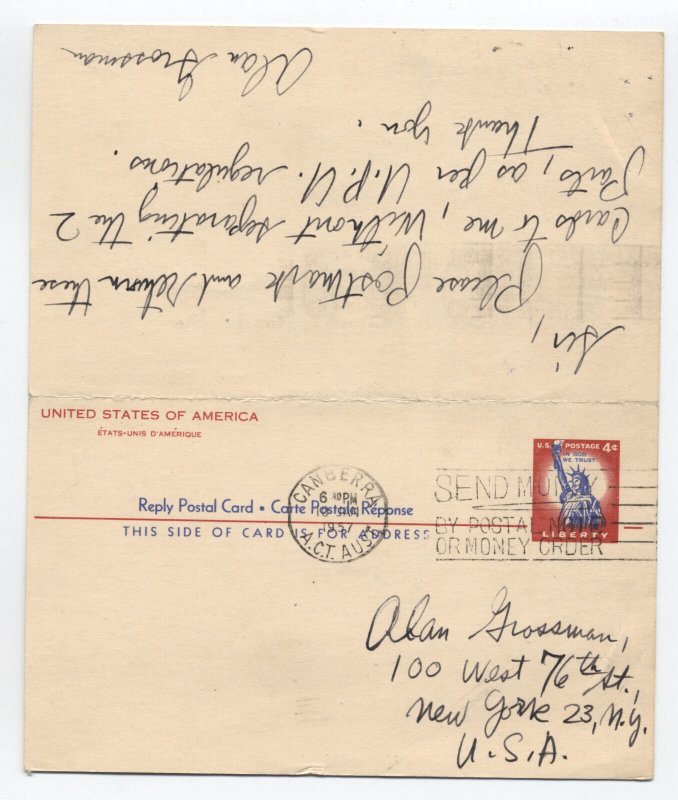 Sir,
Please postmark and return these
cards to me, without separating the 2
parts, as per U.P.U. regulations.
Thank you.
Alan Grossman
UNITED STATES OF AMERICA
ÉTATS-UNIS D'AMÉRIQUE
U.S. POSTAGE 4¢
IN GOD
WE TRUST
LIBERTY
CANBERRA
6 PM
1957
A.C.T. AUST
SEND MONEY
BY POSTAL NOTE
OR MONEY ORDER
Reply Postal Card • Carte Postale Réponse
THIS SIDE OF CARD IS FOR ADDRESS
Alan Grossman,
100 West 76th St.,
New York 23, N.Y.
U.S.A.